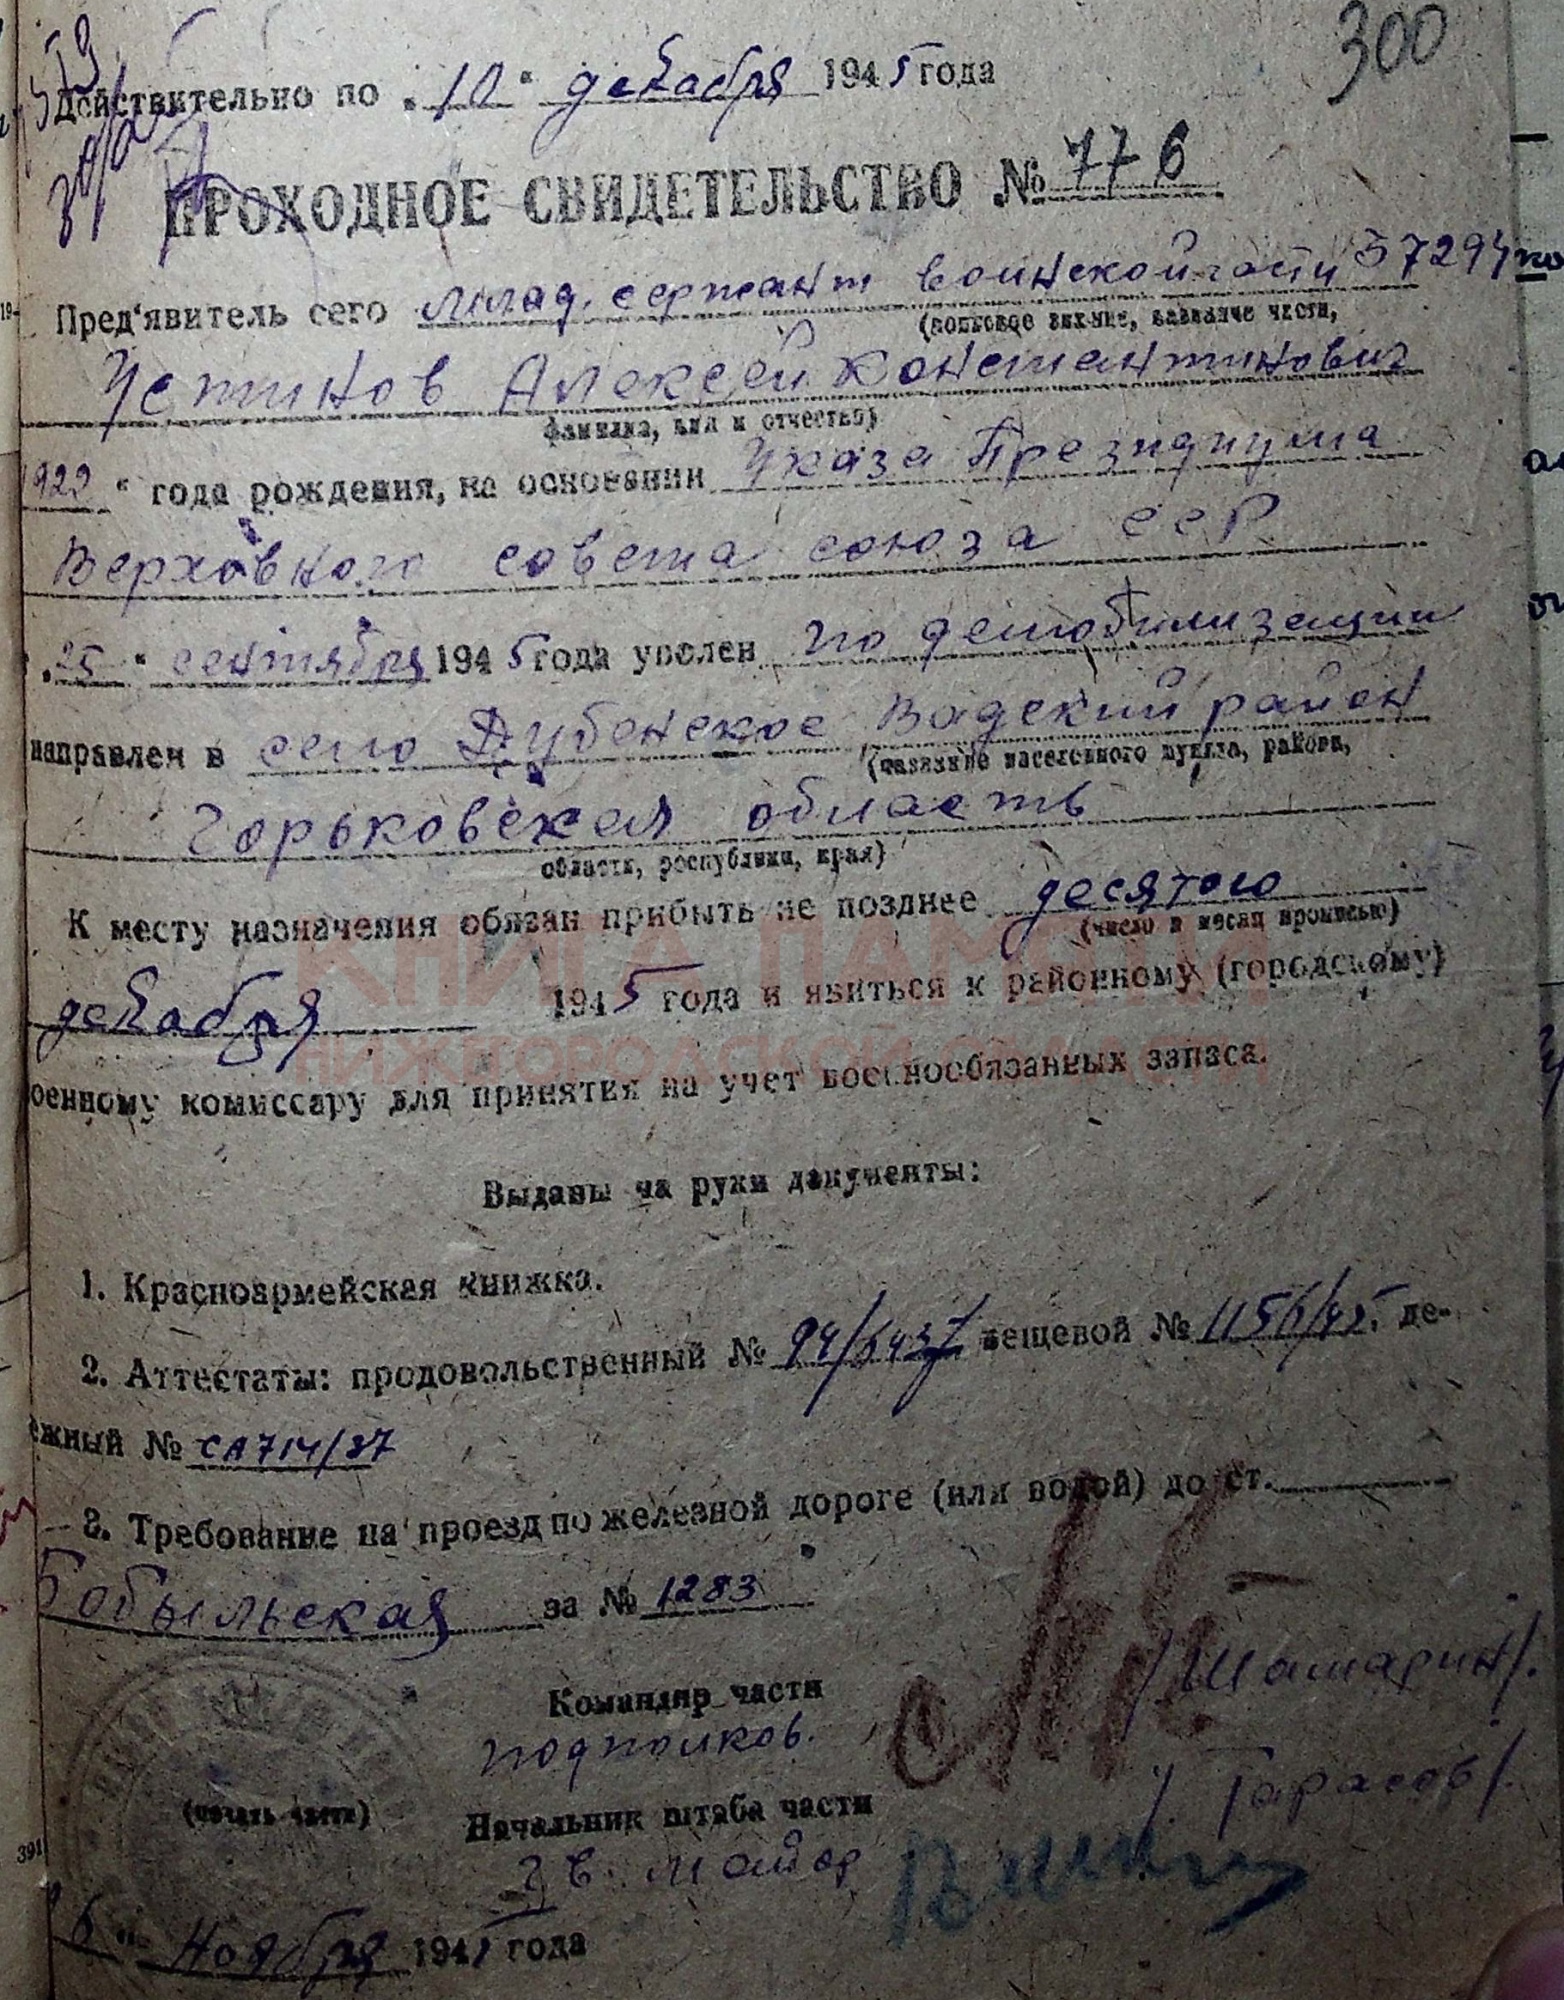 300
Действительно по „10“ декабря 1945 года
ПРОХОДНОЕ СВИДЕТЕЛЬСТВО № 776
Пред'явитель сего млад. сержант воинской части 57294
(воинское звание, название части,
Устинов Алексей Константинович
фамилия, имя и отчество)
1922 “ года рождения, на основании Указа Президиума
Верховного совета союза ССР
„25“ сентября 1945 года уволен по демобилизации
направлен в село Дубенское Вадский район
(название населенного пункта, района,
Горьковская область
области, республики, края)
К месту назначения обязан прибыть не позднее десятого
(число и месяц прописью)
декабря 1945 года и явиться к районному (городскому)
КНИГА ПАМЯТИ
НИЖЕГОРОДСКОЙ ОБЛАСТИ
оенному комиссару для принятия на учет военнообязанных запаса.
Выданы на руки документы:
1. Красноармейская книжка.
2. Аттестаты: продовольственный № 94/6437 вещевой № 1156/45, де-
ежный № СА714/37
3. Требование на проезд по железной дороге (или водой) до ст.
Бобыльская за № 1283
Командир части
подполков. /Шамарин/.
(печать части)
Начальник штаба части
гв. майор /Тарасов/.
391
6 “ ноября 1945 года